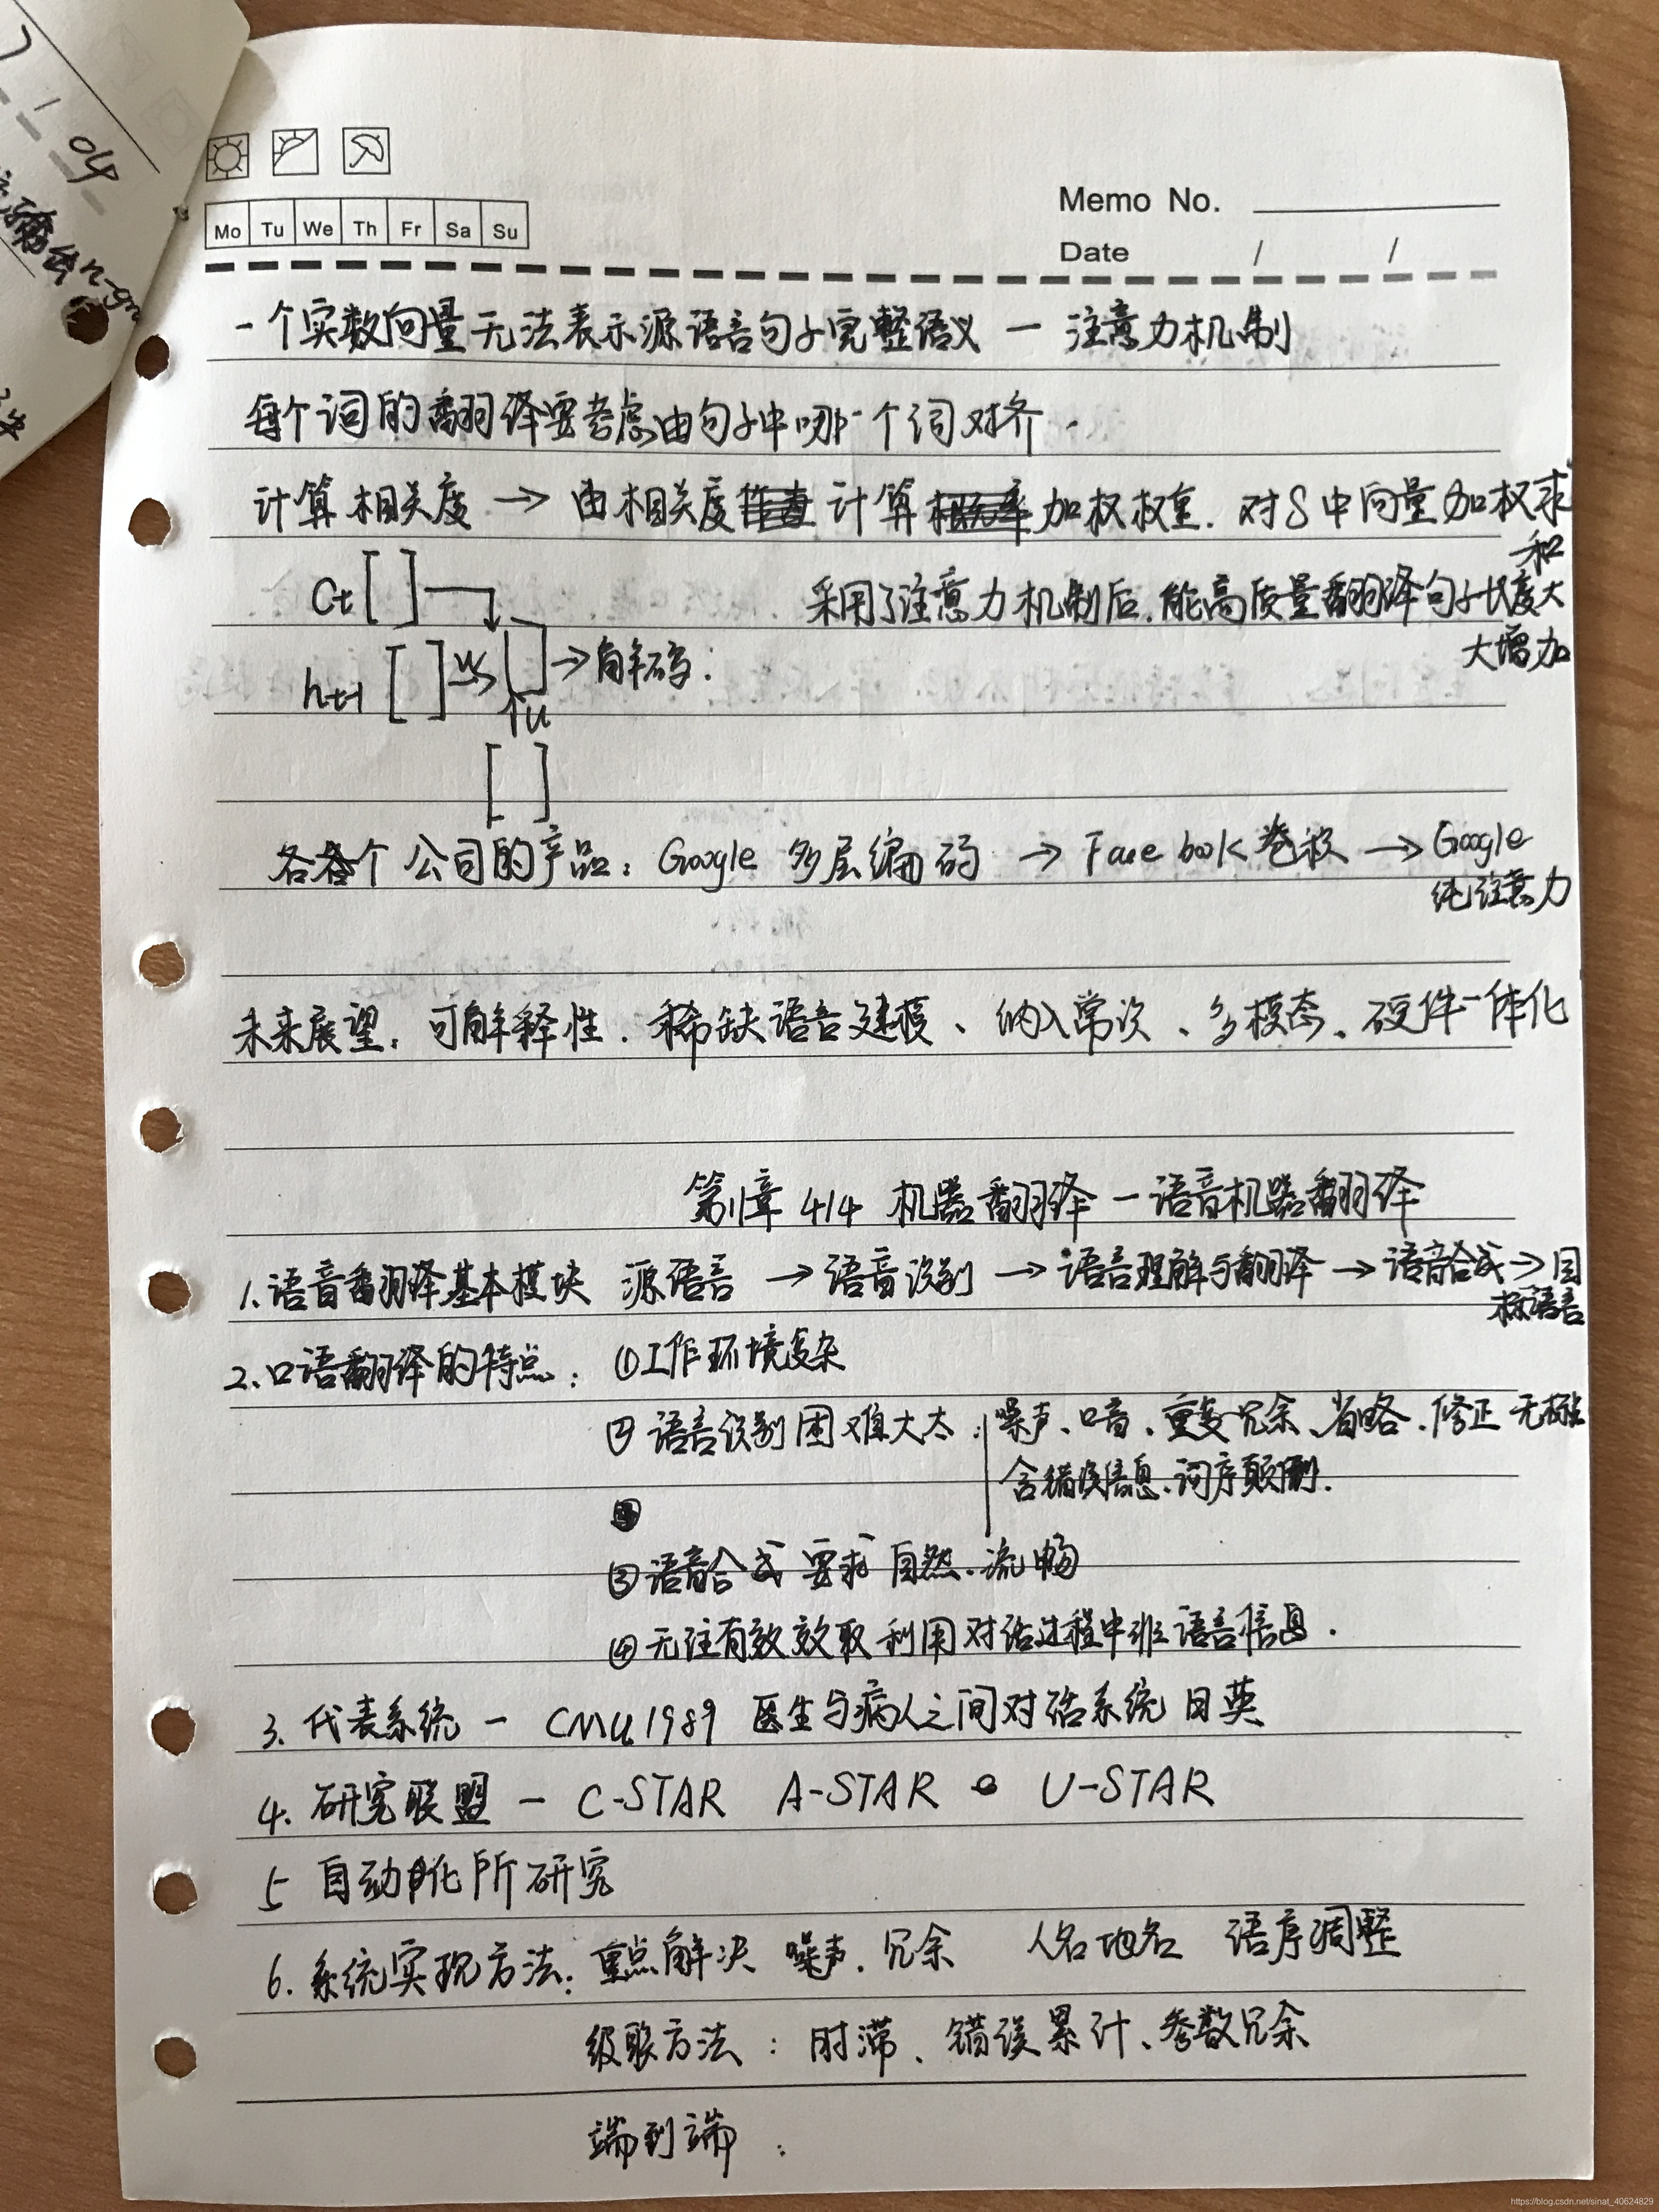 04
n-gr
Mo Tu We Th Fr Sa Su
Memo No.
Date / /
一个实数向量无法表示源语言句子完整语义 — 注意力机制
每个词的翻译要考虑由句子中哪一个词对齐.
计算相关度 → 由相关度 计算 加权权重. 对S中向量加权求
和
Ct [ ] 采用了注意力机制后,能高质量翻译句子长度大
大增加
ht-1 [ ] W → [ ] → 解码:
↑U
[ ]
各个公司的产品: Google 多层编码 → Facebook 卷积 → Google
纯注意力
未来展望: 可解释性. 稀缺语言建模、纳入常识、多模态、硬件一体化
第 章 414 机器翻译 — 语音机器翻译
1.语音翻译基本模块 源语言 → 语音识别 → 语言理解与翻译 → 语音合成 → 目
标语言
2.口语翻译的特点: ①工作环境复杂
②语音识别困难太大: 噪声、口音、重复冗余、省略、修正 无标点
含错误信息、词序颠倒.
③语音合成 要求 自然、流畅
④无法有效 取利用对话过程中非语言信息.
3. 代表系统 — CMU1989 医生与病人之间对话系统 日英
4. 研究联盟 — C-STAR A-STAR U-STAR
5 自动化所研究
6. 系统实现方法: 重点解决 噪声. 冗余 人名地名 语序调整
级联方法: 时滞、错误累计、参数冗余
端到端:
https://blog.csdn.net/sinat_40624829